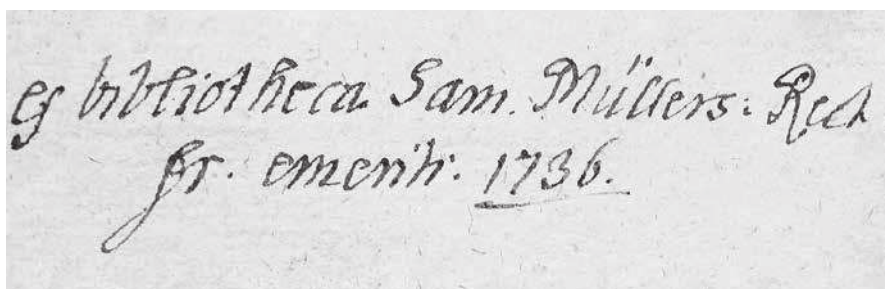 ex bibliotheca Sam. Müllers: Rect
gr. emerit: 1736.